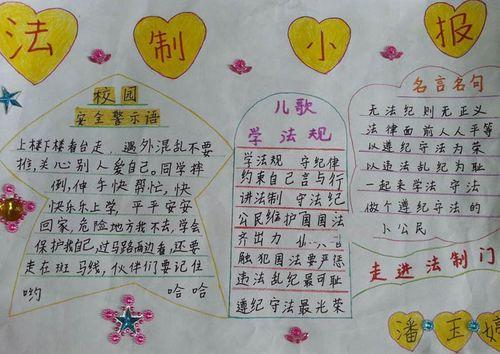 法制小报
校园
安全警示语
上楼下楼看台走 遇外混乱不要
推,关心别人爱自己。同学摔
倒,伸手快帮忙,快
快乐乐上学,平平安安
回家,危险地方我不去,学会
保护我自己,过马路两边看,还要
走在斑马线,伙伴们要记住
哟 哈哈
儿歌
学法规
学法规 守纪律
约束自己言与行
讲法制 守法纪
公民维护国国法
齐出力
触犯国法要严惩
违法乱纪最可耻
遵纪守法最光荣
名言名句
无法纪则无正义
法律面前人人平等
以遵纪守法为荣
以违法乱纪为耻
一起来学法 守法
做个遵纪守法的
小公民
走进法制门
潘玉婷